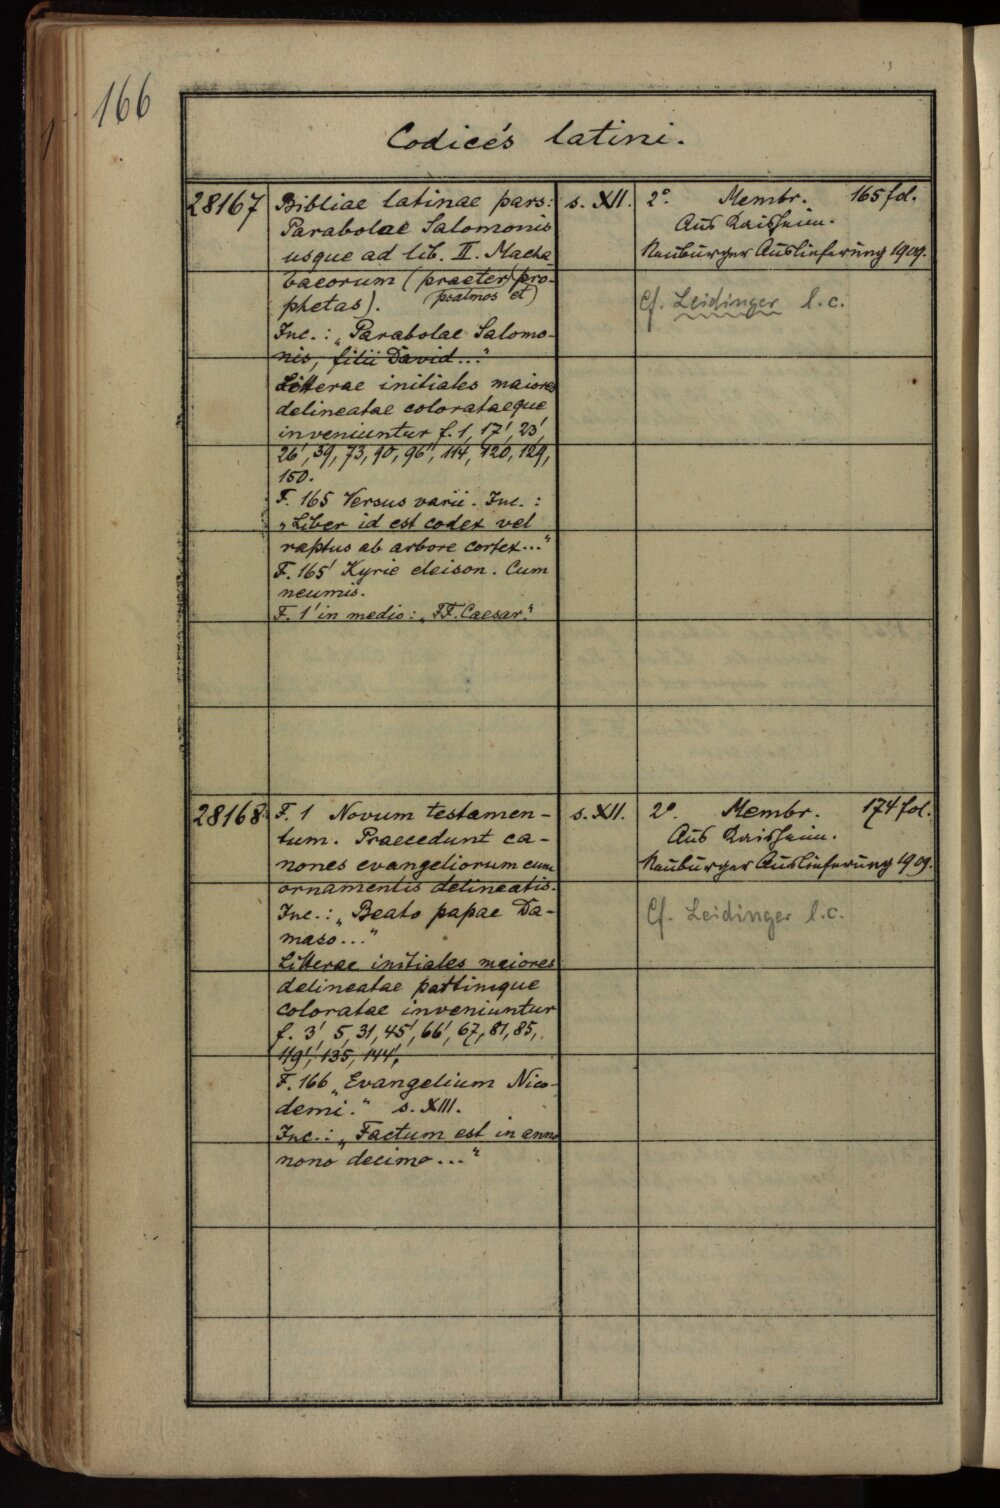 166
Codices latini.
28167
Bibliae latinae pars:
Parabolae Salomonis
usque ad lib. II. Macha-
baeorum (praeter psalmos et pro-
phetas).
Inc.: „Parabolae Salomo-
nis, filii David..."
Litterae initiales maiores
delineatae colorataeque
inveniuntur f. 1, 17', 23',
26', 39, 73, 90, 96', 114, 120, 129,
150.
F. 165 Versus varii. Inc.:
„Liber id est codex vel
raptus ab arbore cortex..."
F. 165' Kyrie eleison. Cum
neumis.
F. 1' in medio: „FF. Caesar."
s. XII.
2° Membr. 165 fol.
Aus Kaisheim.
Neuburger Auslieferung 1909.
Cf. Leidinger l.c.
28168
F. 1 Novum testamen-
tum. Praecedunt ca-
nones evangeliorum cum
ornamentis delineatis.
Inc.: „Beato papae Da-
maso..."
Litterae initiales maiores
delineatae partimque
coloratae inveniuntur
f. 3', 5, 31, 45', 66', 67, 81, 85,
119', 135, 144'.
F. 166 „Evangelium Nico-
demi." s. XIII.
Inc.: „Factum est in anno
nono decimo..."
s. XII.
2° Membr. 174 fol.
Aus Kaisheim.
Neuburger Auslieferung 1909.
Cf. Leidinger l.c.